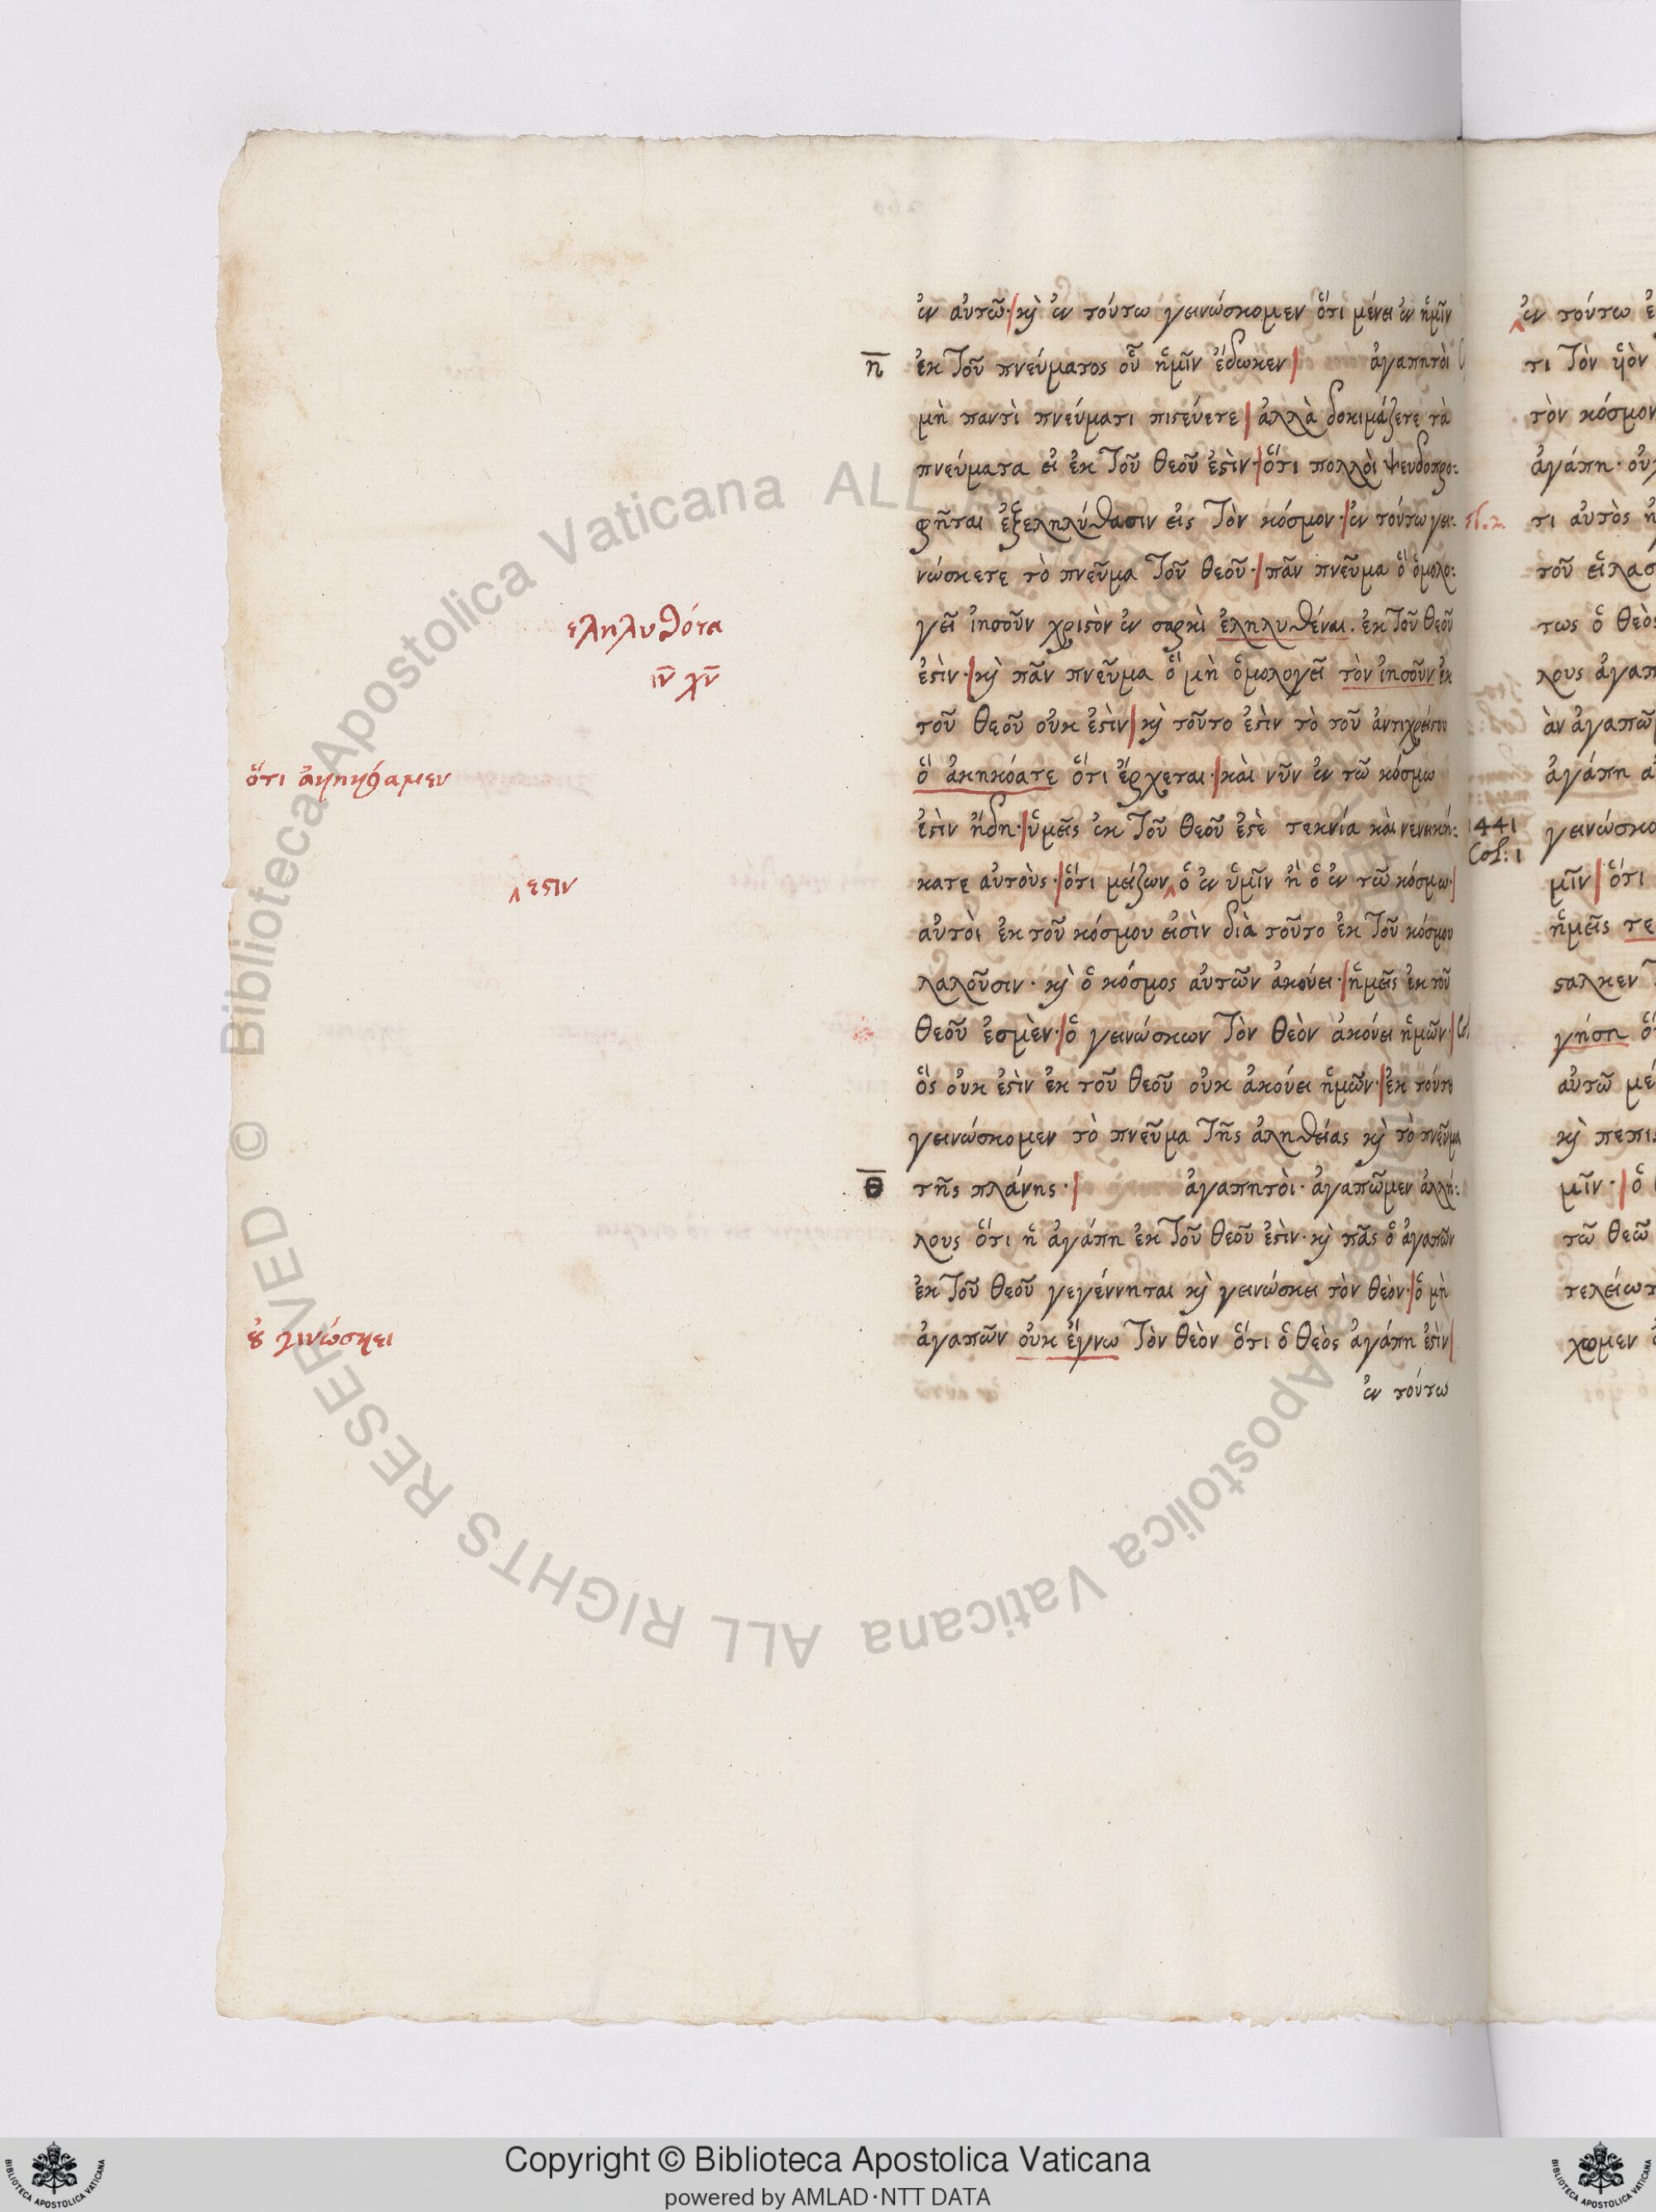 ἐν αὐτῶ· κὶ ἐν τούτω γεινώσκομεν ὅτι μένει ἐν ἡμῖν
η ἐκ τοῦ πνεύματος οὗ ἡμῖν ἔδωκεν ἀγαπητοὶ
μὴ παντὶ πνεύματι πιστεύετε ἀλλὰ δοκιμάζετε τὰ
πνεύματα εἰ ἐκ τοῦ θεοῦ ἐστὶν· ὅτι πολλοὶ ψευδοπρο:
φῆται ἐξεληλύθασιν εἰς τὸν κόσμον· ἐν τούτω γει:
νώσκετε τὸ πνεῦμα τοῦ θεοῦ· πᾶν πνεῦμα ὃ ὁμολο:
εληλυθότα
γεῖ ἰησοῦν χριστὸν ἐν σαρκὶ ἐληλυθέναι. ἐκ τοῦ θεοῦ
ιν χν
ἐστὶν· κὶ πᾶν πνεῦμα ὃ μὴ ὁμολογεῖ τὸν ἰησοῦν ἐκ
τοῦ θεοῦ οὐκ ἐστὶν κὶ τοῦτο ἐστὶν τὸ τοῦ ἀντιχρείστου
ὅτι ἀκηκόαμεν
ὃ ἀκηκόατε ὅτι ἔρχεται· καὶ νῦν ἐν τῶ κόσμω
ἐστὶν ἤδη· ὑμεῖς ἐκ τοῦ θεοῦ ἐστὲ τεκνία καὶ νενεική:
εστιν
κατε αὐτοὺς· ὅτι μείζων ὁ ἐν ὑμῖν ἢ ὁ ἐν τῶ κόσμω·
αὐτοὶ ἐκ τοῦ κόσμου εἰσὶν διὰ τοῦτο ἐκ τοῦ κόσμου
λαλοῦσιν· κὶ ὁ κόσμος αὐτῶν ἀκούει· ἡμεῖς ἐκ τοῦ
θεοῦ ἐσμὲν· ὁ γεινώσκων τὸν θεὸν ἀκούει ἡμῶν·
ὃς οὐκ ἐστὶν ἐκ τοῦ θεοῦ οὐκ ἀκούει ἡμῶν· ἐκ τούτου
γεινώσκομεν τὸ πνεῦμα τῆς ἀληθείας κὶ τὸ πνεῦμα
θ τῆς πλάνης· ἀγαπητοὶ· ἀγαπῶμεν ἀλλή:
λους ὅτι ἡ ἀγάπη ἐκ τοῦ θεοῦ ἐστὶν· κὶ πᾶς ὁ ἀγαπῶν
ἐκ τοῦ θεοῦ γεγέννηται κὶ γεινώσκει τὸν θεὸν· ὁ μὴ
οὐ γινώσκει
ἀγαπῶν οὐκ ἔγνω τὸν θεὸν ὅτι ὁ θεὸς ἀγάπη ἐστὶν
ἐν τούτω
ἐν τούτω
τι τὸν υἱὸν
τὸν κόσμον
ἀγάπη· οὐχ
τι αὐτὸς
τοῦ εἱλασ
τως ὁ θεὸς
λους ἀγαπ
ὰν ἀγαπῶ
ἀγάπη
1441
Col: 1
γεινώσκο
μῖν ὅτι
ἡμεῖς τε
σταλκεν
γήση
αὐτῶ μέ
κὶ πεπισ
μῖν· ὁ
τῶ θεῶ
τελείωτ
χομεν
© Biblioteca Apostolica Vaticana ALL RIGHTS RESERVED
Copyright © Biblioteca Apostolica Vaticana
powered by AMLAD·NTT DATA